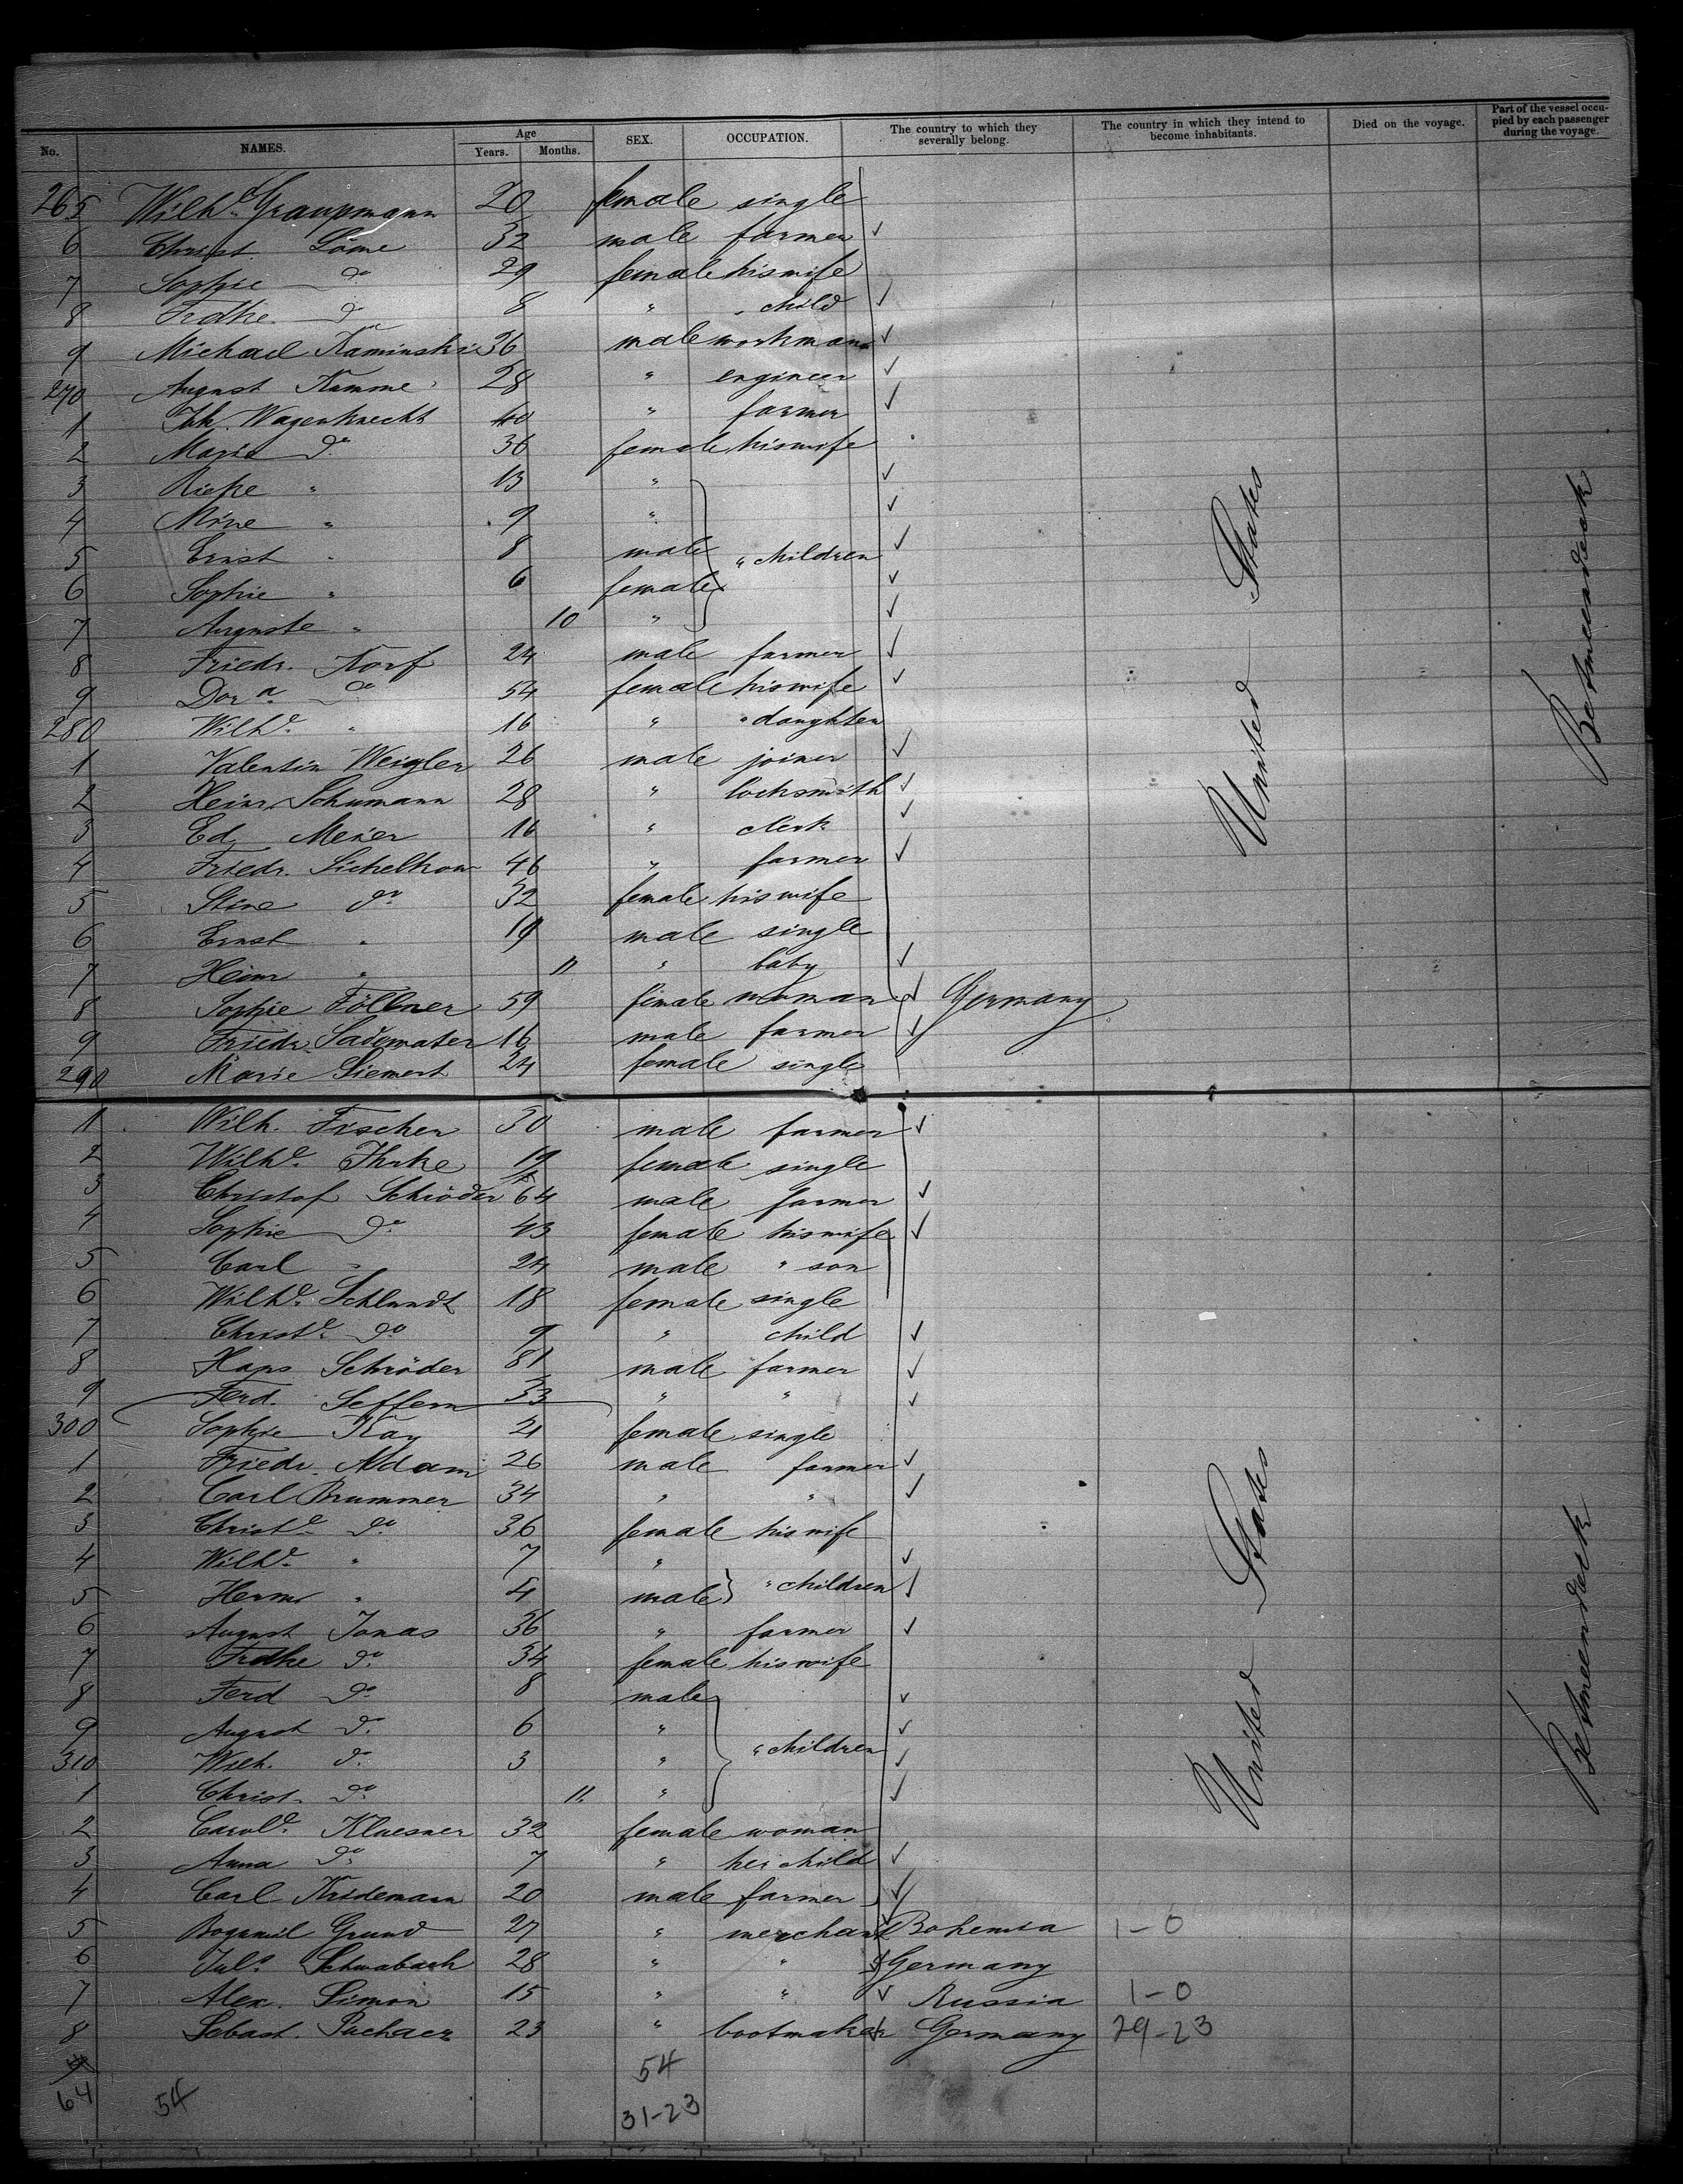 No. NAMES. Age Years. Months. SEX. OCCUPATION. The country to which they severally belong. The country in which they intend to become inhabitants. Died on the voyage. Part of the vessel occupied by each passenger during the voyage.
265 Wilhe. Graupmann 20 female single
6 Christ. Löme 32 male farmer ✓
7 Sophie do 29 female his wife
8 Frdke. do 8 " " child ✓
9 Michael Kaminski 36 male workman ✓
270 August Kamme 28 " engineer ✓
1 Joh. Wagenknecht 40 " farmer ✓
2 Marie do 36 female his wife
3 Rieke " 13 " ✓
4 Mine " 9 " ✓
5 Ernst " 8 male " children ✓
6 Sophie " 6 female ✓
7 Auguste " 10 " ✓
8 Friedr. Korf 24 male farmer ✓
9 Dora do 54 female his wife ✓
280 Wilhe. " 16 " " daughter
1 Valentin Weigler 26 male joiner ✓
2 Heinr. Schumann 28 " locksmith ✓
3 Ed. Meier 16 " clerk ✓
4 Friedr. Sichelkow 46 " farmer ✓
5 Stine do 32 female his wife
6 Ernst " 19 male single
7 Heinr " 11 " baby ✓
8 Sophie Föllner 59 female woman ✓ Germany
9 Friedr. Sadewater 16 male farmer ✓
290 Marie Siewert 24 female single
1 Wilh. Fischer 30 male farmer ✓
2 Wilhe. Ihrke 19 female single
3 Christof Schröder 64 male farmer ✓
4 Sophie do 43 female his wife ✓
5 Carl " 24 male " son
6 Wilhe. Schlundt 18 female single
7 Christe. do 9 " child ✓
8 Hans Schröder 81 male farmer ✓
9 Ferd. Seffern 33 " " ✓
300 Sophie Kay 21 female single
1 Friedr. Adam 26 male farmer ✓
2 Carl Brummer 34 " " ✓
3 Christe. do 36 female his wife
4 Wilhe. " 7 " ✓
5 Herm " 4 male " children ✓
6 August Jonas 36 " farmer ✓
7 Frdke do 34 female his wife
8 Ferd do 8 male ✓
9 August do 6 " ✓
310 Wilh. do 3 " " children ✓
1 Christ. do 11 " ✓
2 Carole. Kluesner 32 female woman
3 Anna do 7 " her child ✓
4 Carl Kridemann 20 male farmer ✓
5 Bogumil Grund 27 " merchant ✓ Bohemia 1-0
6 Juls. Schwabach 28 " " ✓ Germany
7 Alex. Simon 15 " " ✓ Russia 1-0
8 Sebast. 23 " bootmaker ✓ Germany 29-23
54
64 54 31-23
United States
Betweendeck
United States
Betweendeck